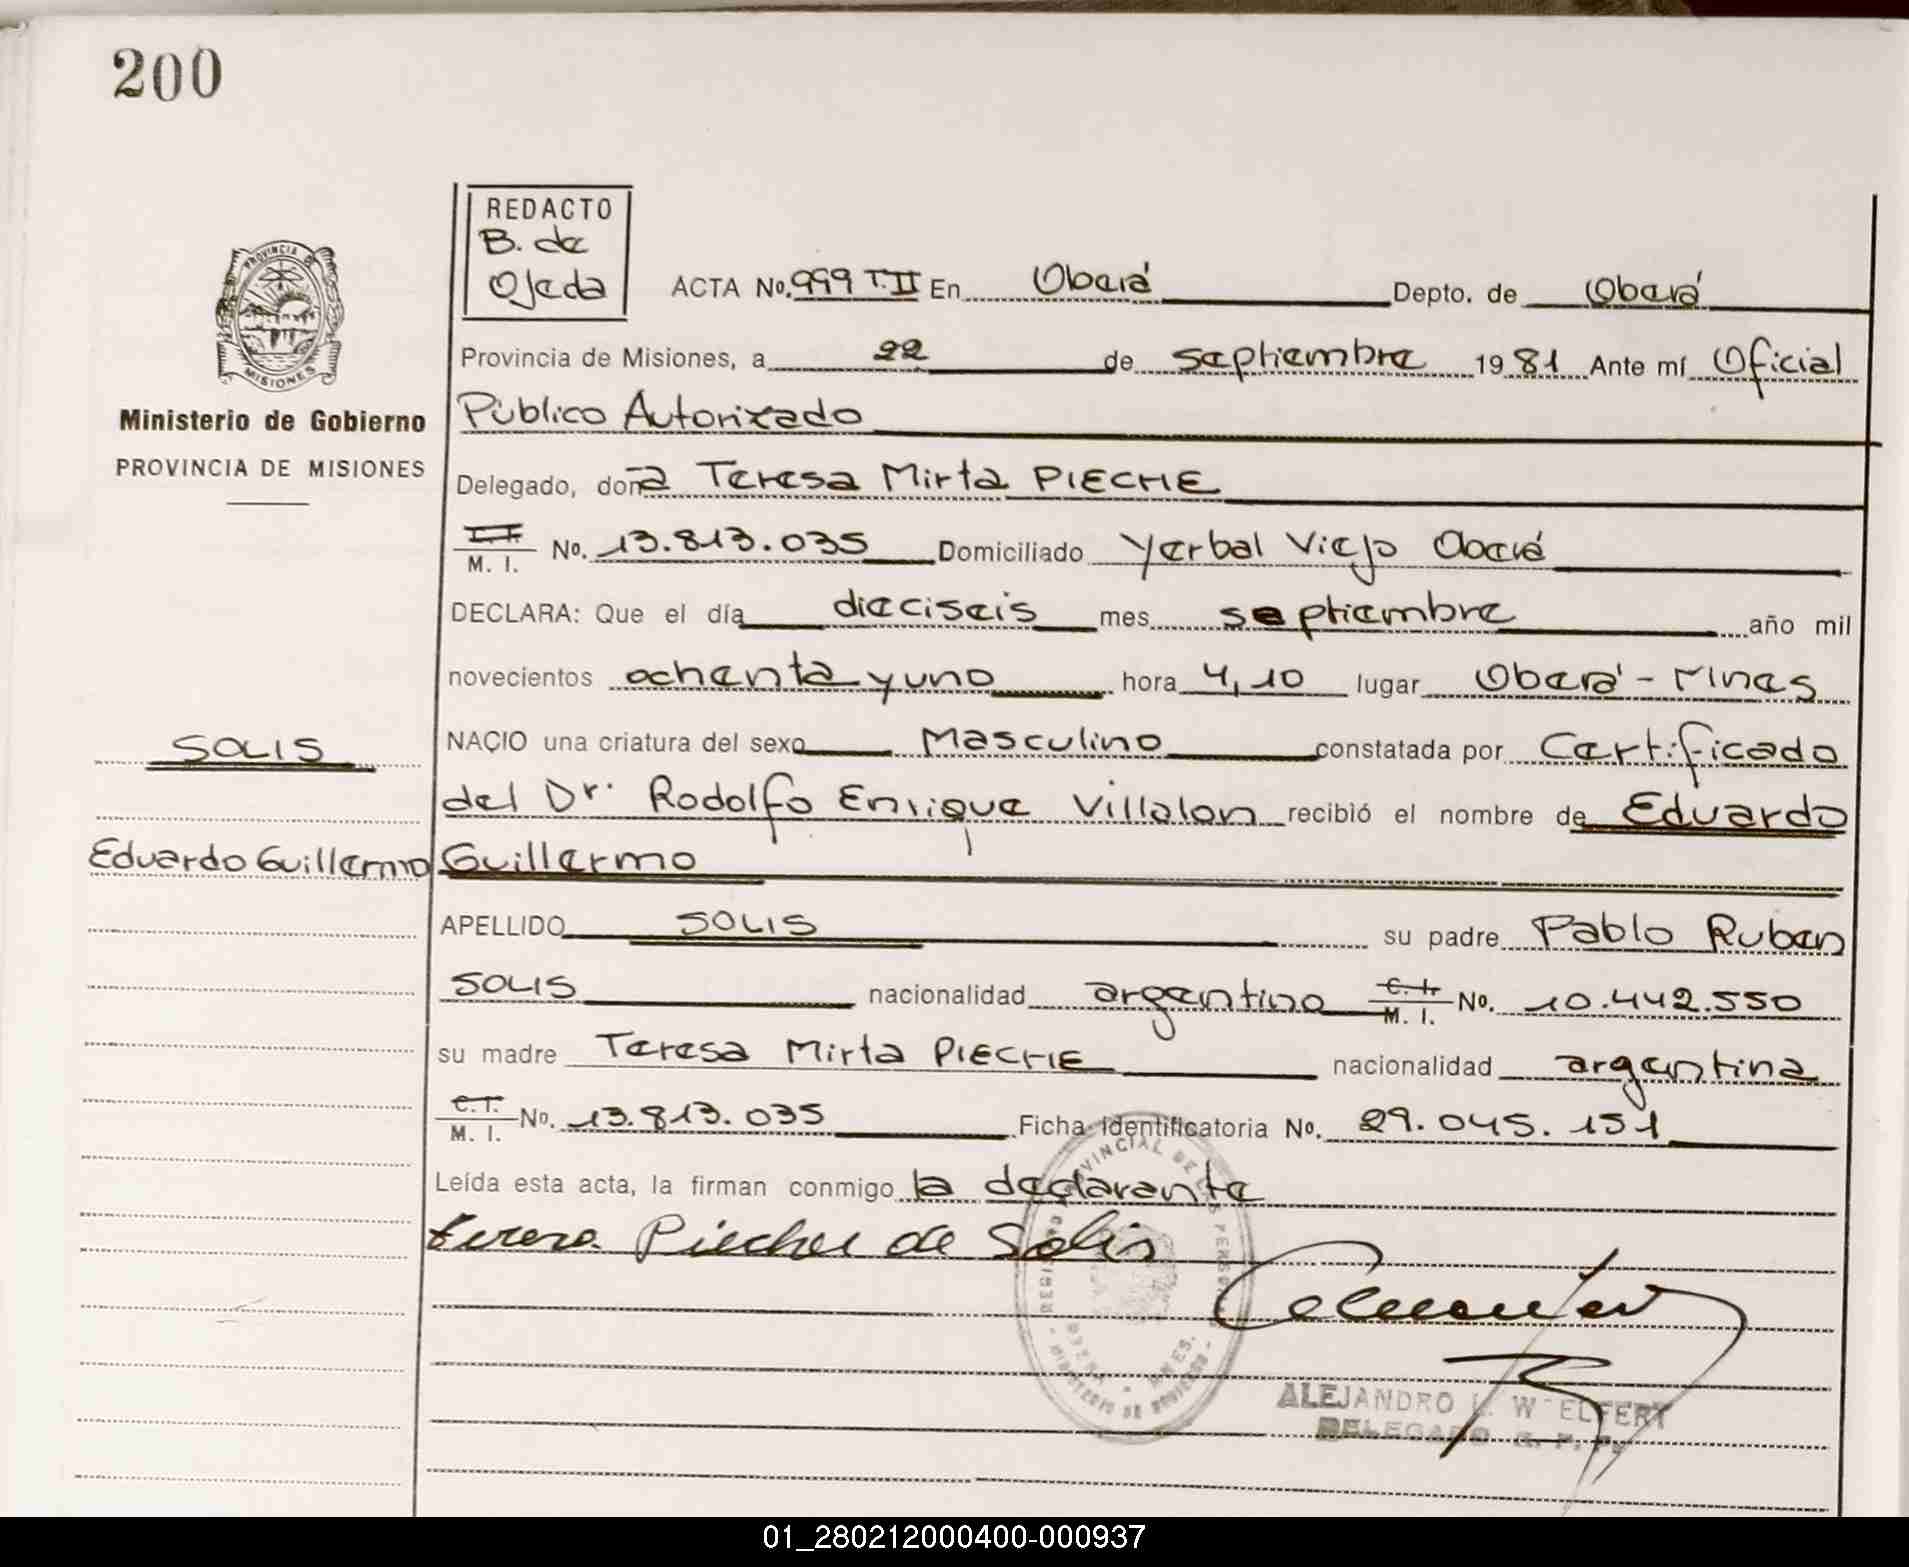 200
REDACTO
B. de
Ojeda
ACTA No. 999 T.II En Oberá Depto. de Oberá
Provincia de Misiones, a 22 de septiembre 1981 Ante mí Oficial
Público Autorizado
PROVINCIA DE
MISIONES
Ministerio de Gobierno
PROVINCIA DE MISIONES
Delegado, doña Teresa Mirta PIECHE
M. I. No. 13.813.035 Domiciliado Yerbal Viejo Oberá
DECLARA: Que el día dieciseis mes septiembre año mil
novecientos ochenta y uno hora 4,10 lugar Oberá - Mnes
SOLIS
NACIO una criatura del sexo Masculino constatada por Certificado
del Dr. Rodolfo Enrique Villalon recibió el nombre de Eduardo
Eduardo Guillermo
Guillermo
APELLIDO SOLIS su padre Pablo Ruben
SOLIS nacionalidad argentino C. I. M. I. No. 10.442.550
su madre Teresa Mirta PIECHE nacionalidad argentina
C. I. M. I. No. 13.813.035 Ficha identificatoria No. 29.045.151
Leída esta acta, la firman conmigo la declarante
teresa Pieche de Solis
ALEJANDRO L. W ELFERT
DELEGADO R. P. P.
01_280212000400-000937